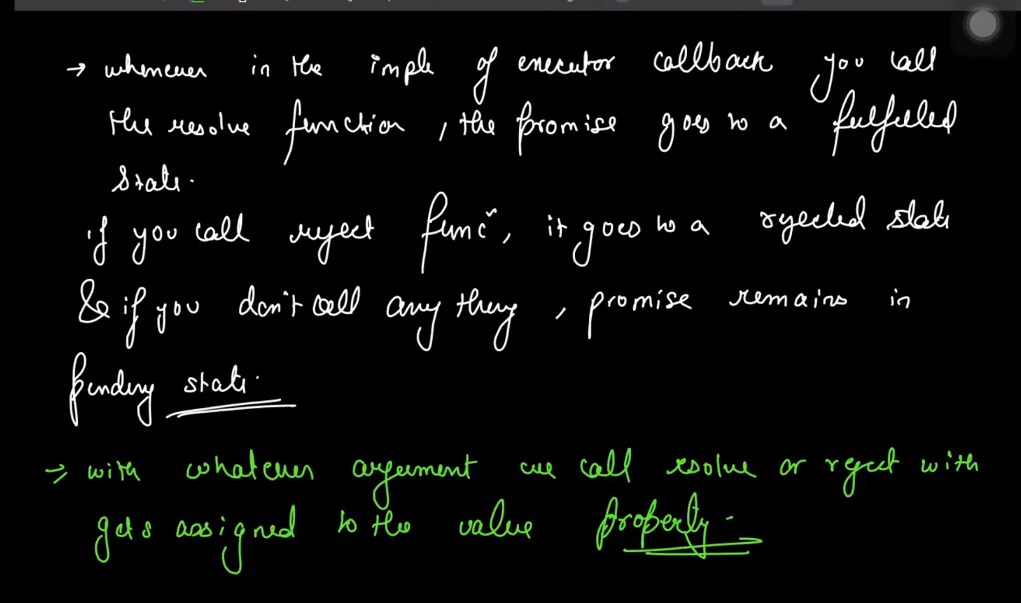 → whenever in the imple of executor callback you call
the resolve function, the promise goes to a fulfilled
state.
if you call reject funcⁿ, it goes to a rejected state
& if you don't call any thing, promise remains in
pending state.
→ with whatever argument we call resolve or reject with
gets assigned to the value property.